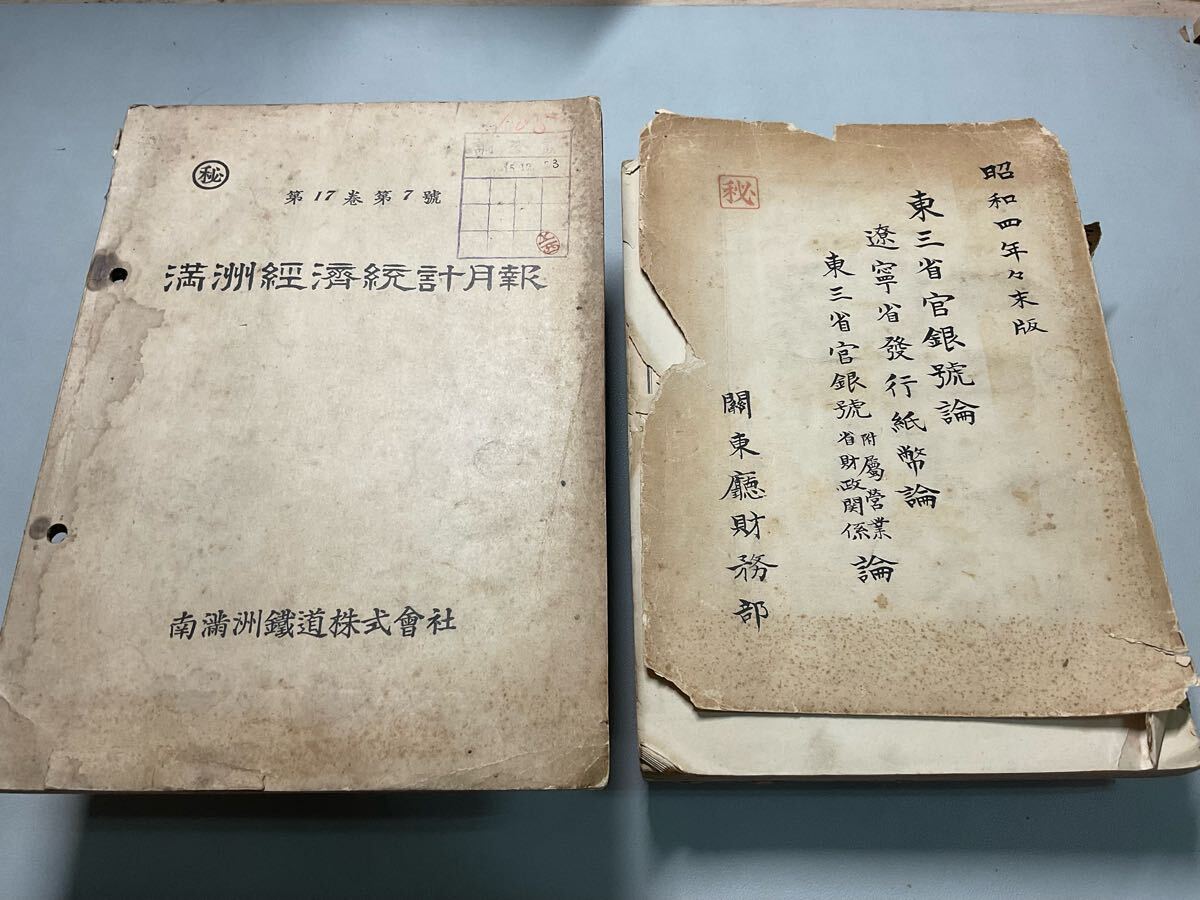 ㊙
第17巻第7號
15.12.23
満洲經濟統計月報
南滿洲鐵道株式會社
昭和四年々末版
東三省官銀號論
遼寧省發行紙幣論
東三省官銀號附屬營業省財政関係論
秘
關東廳財務部